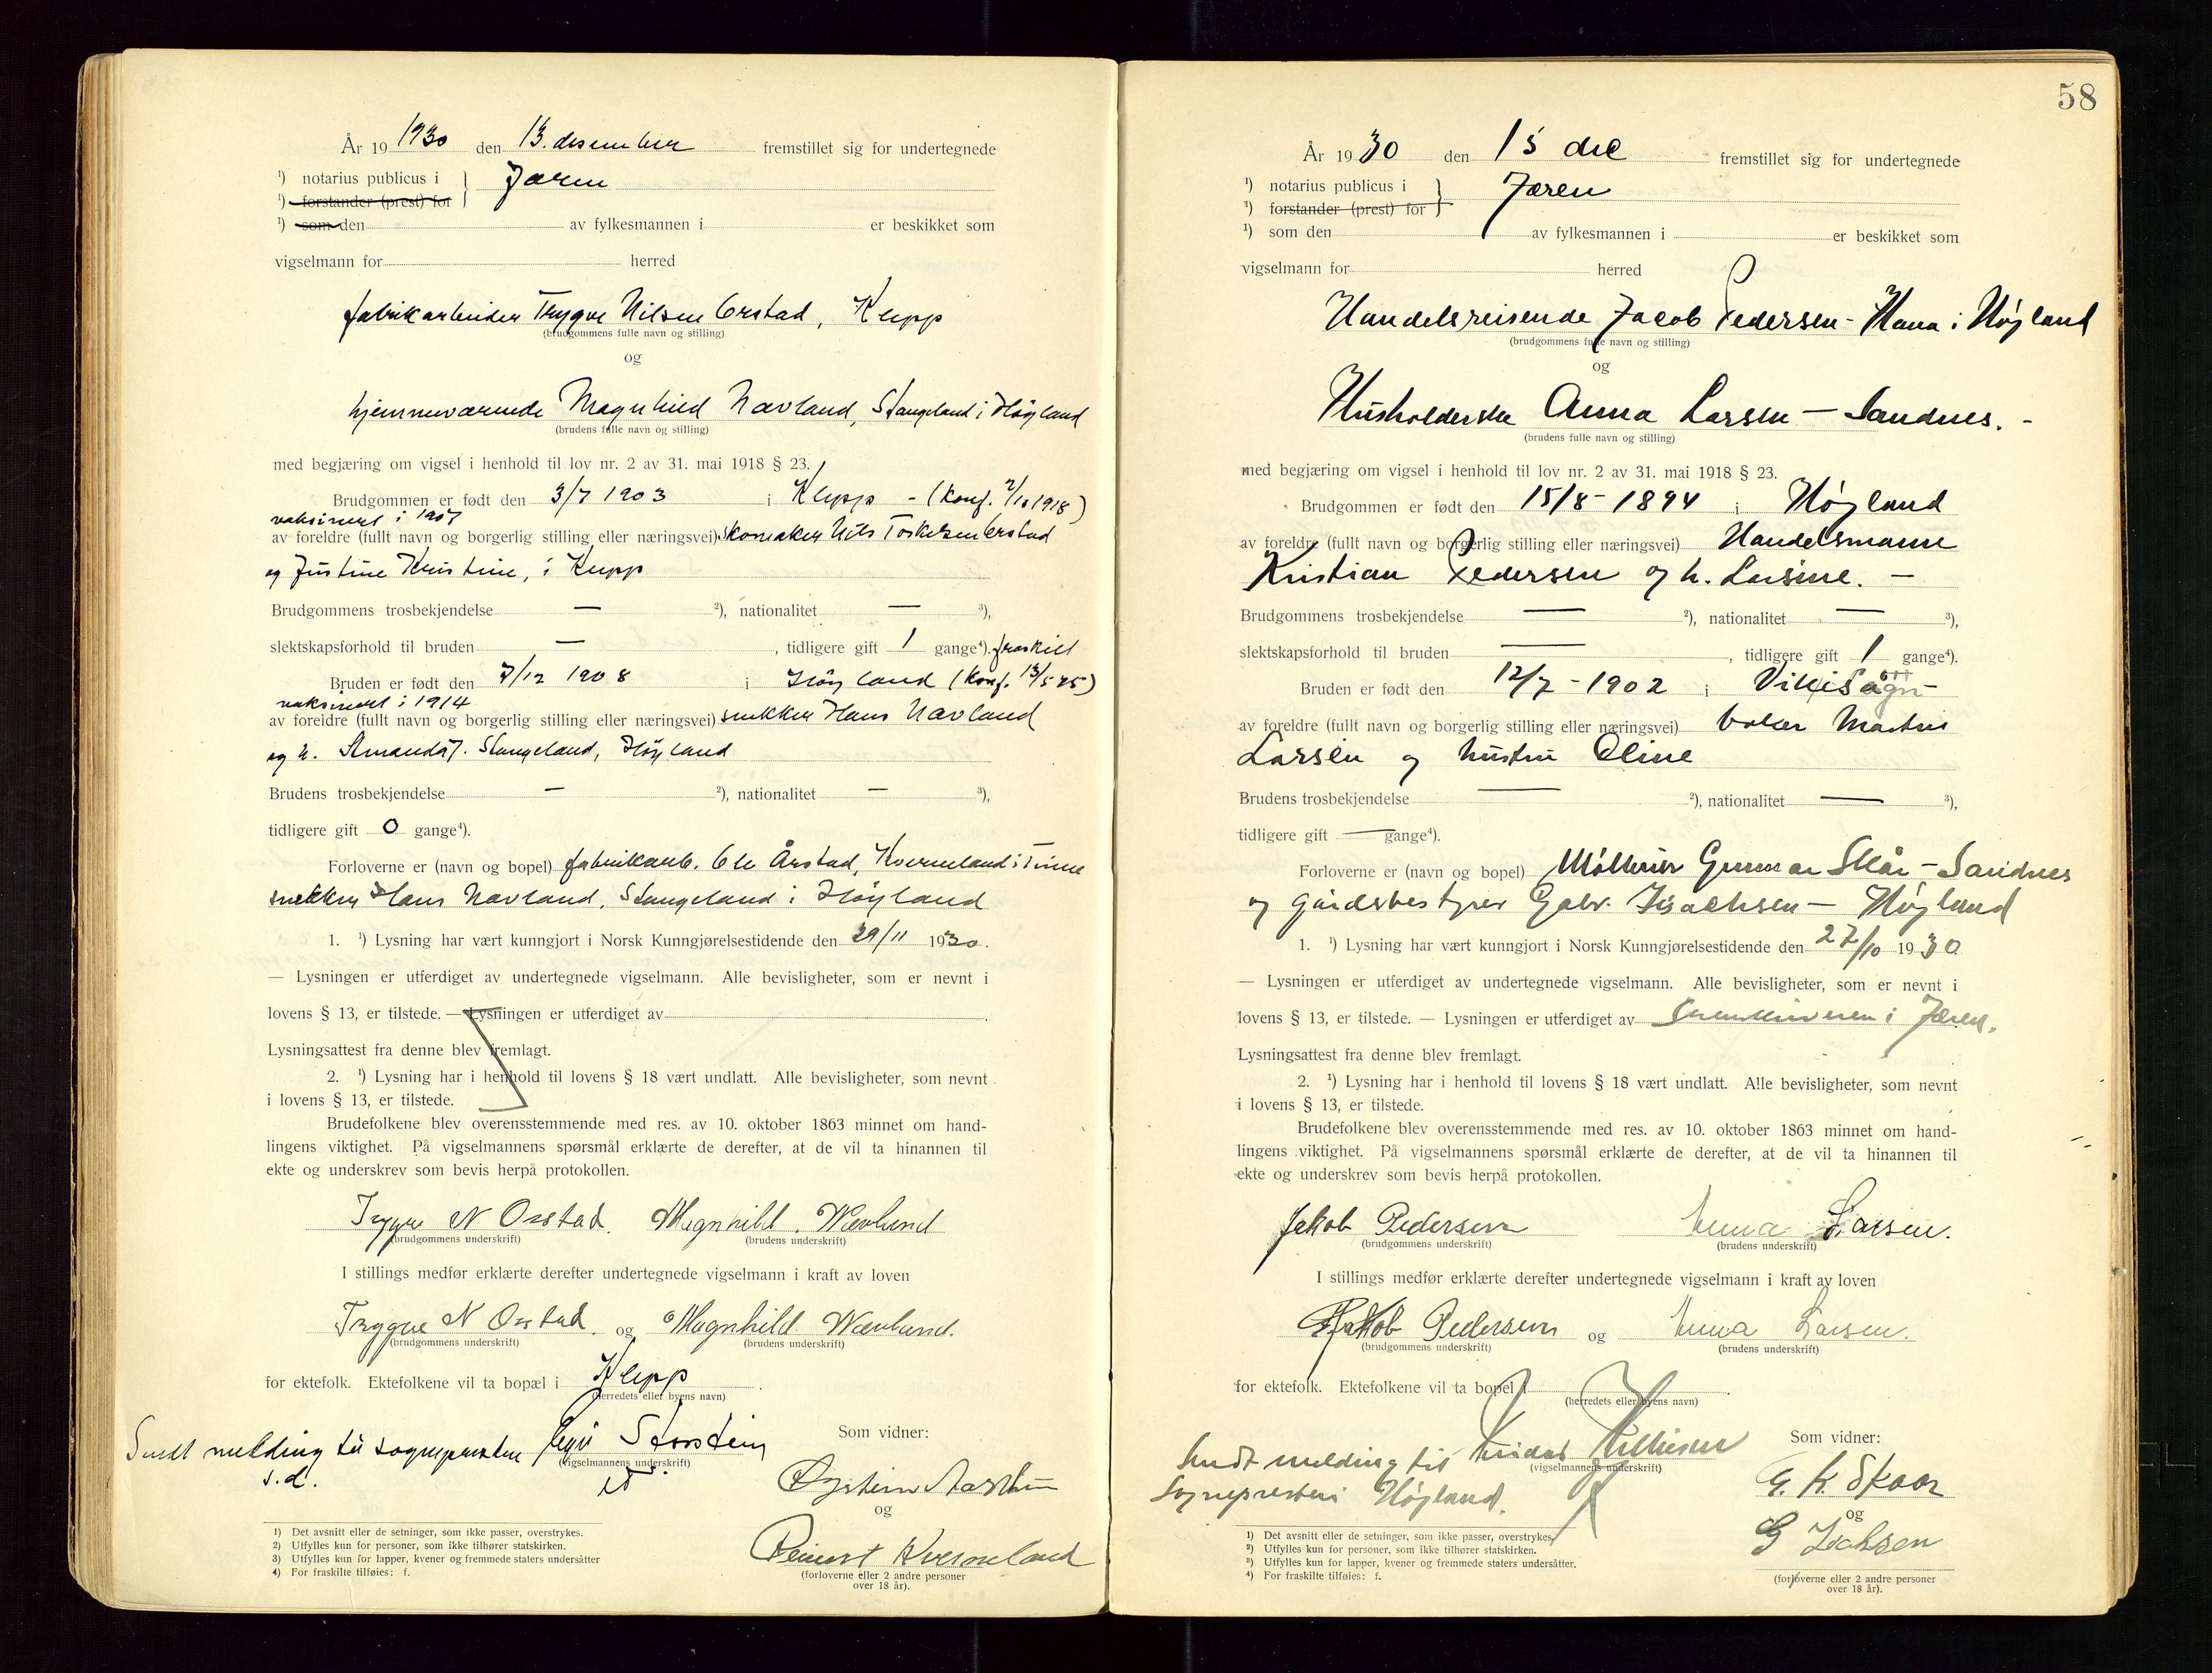 År 19 1930 den 13. desember fremstillet sig for undertegnede
¹) notarius publicus i Jæren
¹) forstander (prest) for
¹) som den av fylkesmannen i er beskikket som
vigselmann for herred
fabrikarbeider Trygve Nilsen Orstad, Klepp
(brudgommens fulle navn og stilling)
og
hjemmeværende Magnhild Nævland, Stangeland i Høyland
(brudens fulle navn og stilling)
med begjæring om vigsel i henhold til lov nr. 2 av 31. mai 1918 § 23.
Brudgommen er født den 3/7 1903 i Klepp - (konf. 2/10 1918)
vaksinert i 1907
av foreldre (fullt navn og borgerlig stilling eller næringsvei) skomaker Nils Torkelsen Orstad
og Justine Kristine, i Klepp
Brudgommens trosbekjendelse — ²), nationalitet — ³),
slektskapsforhold til bruden — , tidligere gift 1 gange⁴). fraskilt
Bruden er født den 7/12 1908 i Høyland (konf. 13/5 25)
vaksinert i 1914
av foreldre (fullt navn og borgerlig stilling eller næringsvei) snekker Hans Nævland
og h. Amanda J. Stangeland, Høyland
Brudens trosbekjendelse — ²), nationalitet — ³),
tidligere gift 0 gange⁴).
Forloverne er (navn og bopel) fabrikarb. Ole Årstad, Kverneland i Time
snekker Hans Nævland, Stangeland i Høyland
1. ¹) Lysning har vært kunngjort i Norsk Kunngjørelsestidende den 29/11 1930.
— Lysningen er utferdiget av undertegnede vigselmann. Alle bevisligheter, som er nevnt i
lovens § 13, er tilstede. — Lysningen er utferdiget av .
Lysningsattest fra denne blev fremlagt.
2. ¹) Lysning har i henhold til lovens § 18 vært undlatt. Alle bevisligheter, som nevnt
i lovens § 13, er tilstede.
Brudefolkene blev overensstemmende med res. av 10. oktober 1863 minnet om hand-
lingens viktighet. På vigselmannens spørsmål erklærte de derefter, at de vil ta hinannen til
ekte og underskrev som bevis herpå protokollen.
Trygve N Orstad. Magnhild Nævland
(brudgommens underskrift) (brudens underskrift)
I stillings medfør erklærte derefter undertegnede vigselmann i kraft av loven
Trygve N Orstad. og Magnhild Nævland.
(brudgommens underskrift) (brudens underskrift)
for ektefolk. Ektefolkene vil ta bopæl i Klepp .
(herredets eller byens navn)
Sendt melding til sognepresten Storstein Som vidner:
s.d. (vigselmannens underskrift)
Øystein
og
Reinert Kverneland
(forloverne eller 2 andre personer
over 18 år).
1) Det avsnitt eller de setninger, som ikke passer, overstrykes.
2) Utfylles kun for personer, som ikke tilhører statskirken.
3) Utfylles kun for lapper, kvener og fremmede staters undersåtter
4) For fraskilte tilføies: f.
58
År 19 30 den 15 des fremstillet sig for undertegnede
¹) notarius publicus i Jæren
¹) forstander (prest) for
¹) som den av fylkesmannen i er beskikket som
vigselmann for herred
Handelsreisende Jacob Pedersen - Hana i Høyland
(brudgommens fulle navn og stilling)
og
Husholderske Anna Larsen — Sandnes. -
(brudens fulle navn og stilling)
med begjæring om vigsel i henhold til lov nr. 2 av 31. mai 1918 § 23.
Brudgommen er født den 15/8 - 1894 i Høyland
av foreldre (fullt navn og borgerlig stilling eller næringsvei) Handelsmann
Kristian Pedersen og h. Lusine. —
Brudgommens trosbekjendelse — ²), nationalitet — ³),
slektskapsforhold til bruden — , tidligere gift 1 gange⁴).
Bruden er født den 12/7 - 1902 i
av foreldre (fullt navn og borgerlig stilling eller næringsvei) baker Martin
Larsen og hustru Oline
Brudens trosbekjendelse — ²), nationalitet — ³),
tidligere gift — gange⁴).
Forloverne er (navn og bopel) Gunnar Skår — Sandnes
og gårdsbestyrer Gabr. Isachsen — Høyland
1. ¹) Lysning har vært kunngjort i Norsk Kunngjørelsestidende den 27/10 1930
— Lysningen er utferdiget av undertegnede vigselmann. Alle bevisligheter, som er nevnt i
lovens § 13, er tilstede. — Lysningen er utferdiget av Sorenskriveren i Jæren.
Lysningsattest fra denne blev fremlagt.
2. ¹) Lysning har i henhold til lovens § 18 vært undlatt. Alle bevisligheter, som nevnt
i lovens § 13, er tilstede.
Brudefolkene blev overensstemmende med res. av 10. oktober 1863 minnet om hand-
lingens viktighet. På vigselmannens spørsmål erklærte de derefter, at de vil ta hinannen til
ekte og underskrev som bevis herpå protokollen.
Jakob Pedersen Anna Larsen.
(brudgommens underskrift) (brudens underskrift)
I stillings medfør erklærte derefter undertegnede vigselmann i kraft av loven
Jakob Pedersen og Anna Larsen.
(brudgommens underskrift) (brudens underskrift)
for ektefolk. Ektefolkene vil ta bopel i .
(herredets eller byens navn)
Sendt melding til Som vidner:
(vigselmannens underskrift)
Sognepresten i Høyland. G. K. Skaar
og
G Isachsen
(forloverne eller 2 andre personer
over 18 år).
1) Det avsnitt eller de setninger, som ikke passer, overstrykes.
2) Utfylles kun for personer, som ikke tilhører statskirken.
3) Utfylles kun for lapper, kvener og fremmede staters undersåtter.
4) For fraskilte tilføies: f.